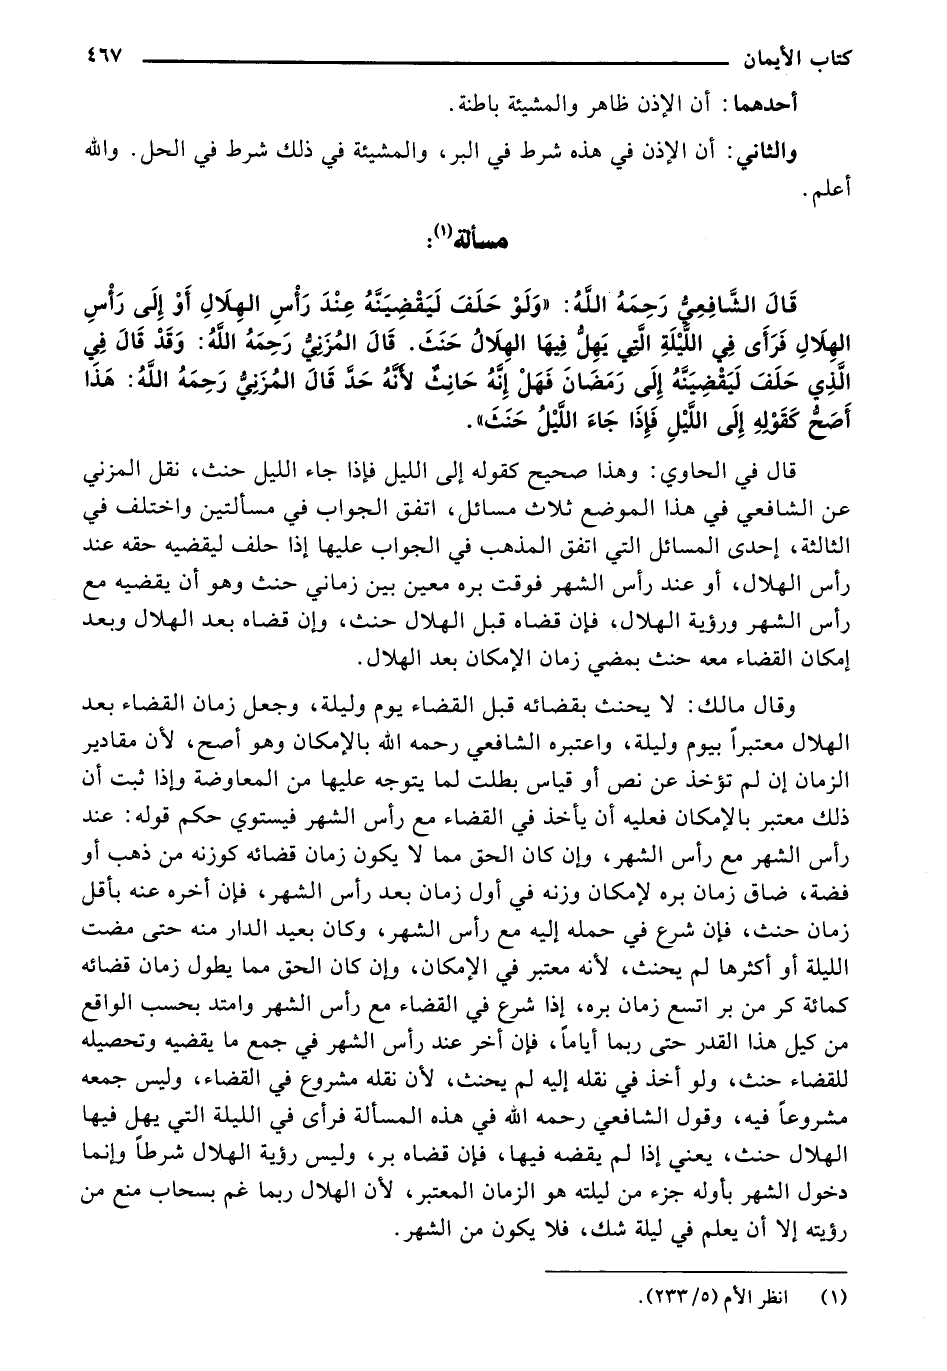 كتاب الأيمان ٤٦٧
أحدهما: أن الإذن ظاهر والمشيئة باطنة.
والثاني: أن الإذن في هذه شرط في البر، والمشيئة في ذلك شرط في الحل. والله
أعلم.
مسألة(١):
قَالَ الشَّافِعِيُّ رَحِمَهُ اللَّهُ: «وَلَوْ حَلَفَ لَيَقْضِيَنَّهُ عِنْدَ رَأْسِ الهِلَالِ أَوْ إِلَى رَأْسِ
الهِلَالِ فَرَأَى فِي اللَّيْلَةِ الَّتِي يَهِلُّ فِيهَا الهِلَالُ حَنَثَ. قَالَ المُزَنِيُّ رَحِمَهُ اللَّهُ: وَقَدْ قَالَ فِي
الَّذِي حَلَفَ لَيَقْضِيَنَّهُ إِلَى رَمَضَانَ فَهَلْ إِنَّهُ حَانِثٌ لأَنَّهُ حَدَّ قَالَ المُزَنِيُّ رَحِمَهُ اللَّهُ: هَذَا
أَصَحُّ كَقَوْلِهِ إِلَى اللَّيْلِ فَإِذَا جَاءَ اللَّيْلُ حَنَثَ».
قال في الحاوي: وهذا صحيح كقوله إلى الليل فإذا جاء الليل حنث، نقل المزني
عن الشافعي في هذا الموضع ثلاث مسائل، اتفق الجواب في مسألتين واختلف في
الثالثة، إحدى المسائل التي اتفق المذهب في الجواب عليها إذا حلف ليقضيه حقه عند
رأس الهلال، أو عند رأس الشهر فوقت بره معين بين زماني حنث وهو أن يقضيه مع
رأس الشهر ورؤية الهلال، فإن قضاه قبل الهلال حنث، وإن قضاه بعد الهلال وبعد
إمكان القضاء معه حنث بمضي زمان الإمكان بعد الهلال.
وقال مالك: لا يحنث بقضائه قبل القضاء يوم وليلة، وجعل زمان القضاء بعد
الهلال معتبراً بيوم وليلة، واعتبره الشافعي رحمه الله بالإمكان وهو أصح، لأن مقادير
الزمان إن لم تؤخذ عن نص أو قياس بطلت لما يتوجه عليها من المعاوضة وإذا ثبت أن
ذلك معتبر بالإمكان فعليه أن يأخذ في القضاء مع رأس الشهر فيستوي حكم قوله: عند
رأس الشهر مع رأس الشهر، وإن كان الحق مما لا يكون زمان قضائه كوزنه من ذهب أو
فضة، ضاق زمان بره لإمكان وزنه في أول زمان بعد رأس الشهر، فإن أخره عنه بأقل
زمان حنث، فإن شرع في حمله إليه مع رأس الشهر، وكان بعيد الدار منه حتى مضت
الليلة أو أكثرها لم يحنث، لأنه معتبر في الإمكان، وإن كان الحق مما يطول زمان قضائه
كمائة كر من بر اتسع زمان بره، إذا شرع في القضاء مع رأس الشهر وامتد بحسب الواقع
من كيل هذا القدر حتى ربما أياماً، فإن أخر عند رأس الشهر في جمع ما يقضيه وتحصيله
للقضاء حنث، ولو أخذ في نقله إليه لم يحنث، لأن نقله مشروع في القضاء، وليس جمعه
مشروعاً فيه، وقول الشافعي رحمه الله في هذه المسألة فرأى في الليلة التي يهل فيها
الهلال حنث، يعني إذا لم يقضه فيها، فإن قضاه بر، وليس رؤية الهلال شرطاً وإنما
دخول الشهر بأوله جزء من ليلته هو الزمان المعتبر، لأن الهلال ربما غم بسحاب منع من
رؤيته إلا أن يعلم في ليلة شك، فلا يكون من الشهر.
(١) انظر الأم (٥/٢٣٣).